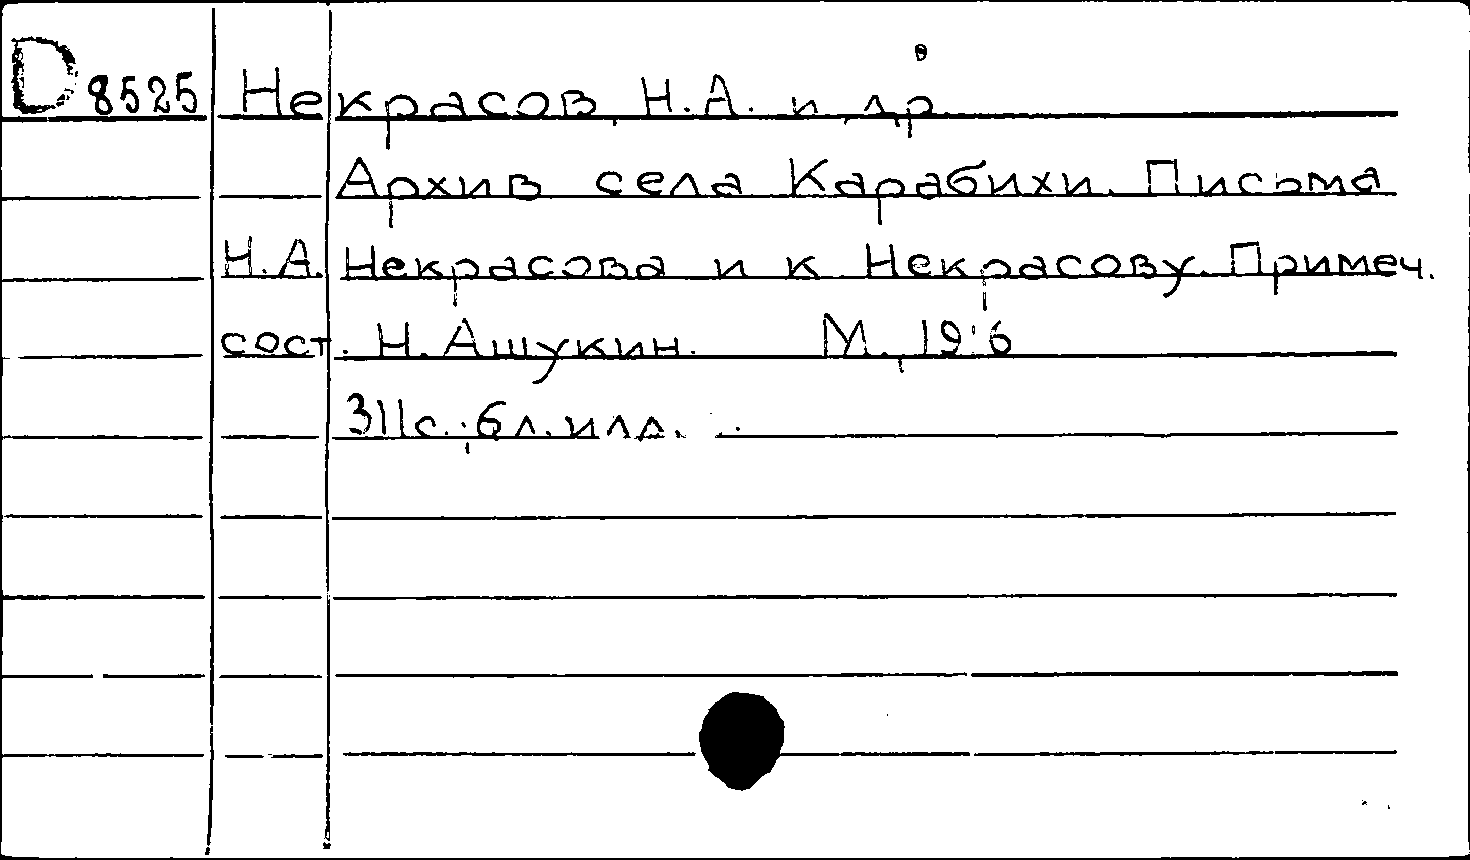 D 8525 Некрасов, Н.А. и др.
Архив села Карабихи. Письма
Н.А. Некрасова и к Некрасову. Примеч.
сост. Н. Ашукин. М.,
311с.; 6 л. илл.